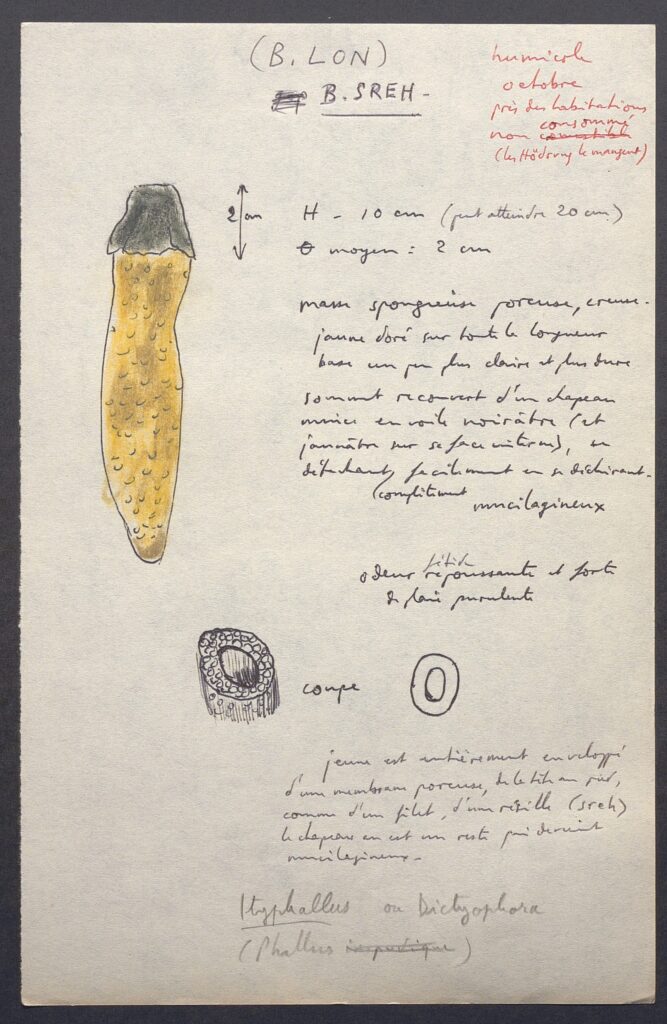 (B. LON)
B. SREH -
humicole
octobre
près des habitations
consommé
non comestible
(les Hödrung le mangent)
2 cm
H - 10 cm (peut atteindre 20 cm.)
Θ moyen = 2 cm
masse spongieuse poreuse, creuse -
jaune doré sur toute la longueur
base un peu plus claire et plus dure
sommet recouvert d'un chapeau
mince en voile noirâtre (et
jaunâtre sur sa face interne), se
détachant facilement en se déchirant.
(complètement mucilagineux
fétide
odeur repoussante et forte
de plaie purulente
coupe
jeune est entièrement enveloppé
d'une membrane poreuse, de la tête au pied,
comme d'un filet, d'une résille (sreh)
le chapeau en est un reste qui devient
mucilagineux -
Ityphallus ou Dictyophora
(Phallus impudique)